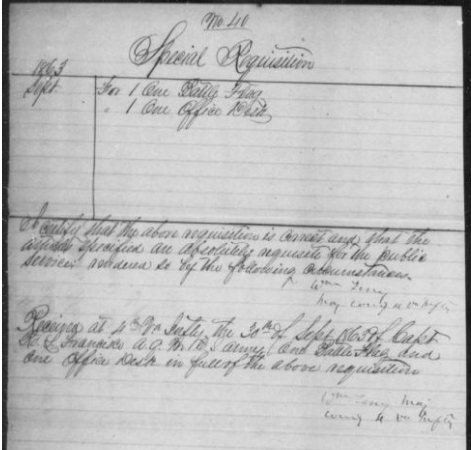 No 40
Special Requisition
1863
Sept For 1 One Battle Flag
" 1 One Office Desk
I certify that the above requisition is correct and that the
articles specified are absolutely requisite for the public
service rendered so by the following circumstances.
Wm Terry
Maj comg 4 Va Infty
Received at 4th Va Infty the 30th of Sept 1863 of Capt
A.Q.M. Army One Battle Flag and
One Office Desk in full of the above requisition
Wm Terry Maj
comg 4 Va Infty